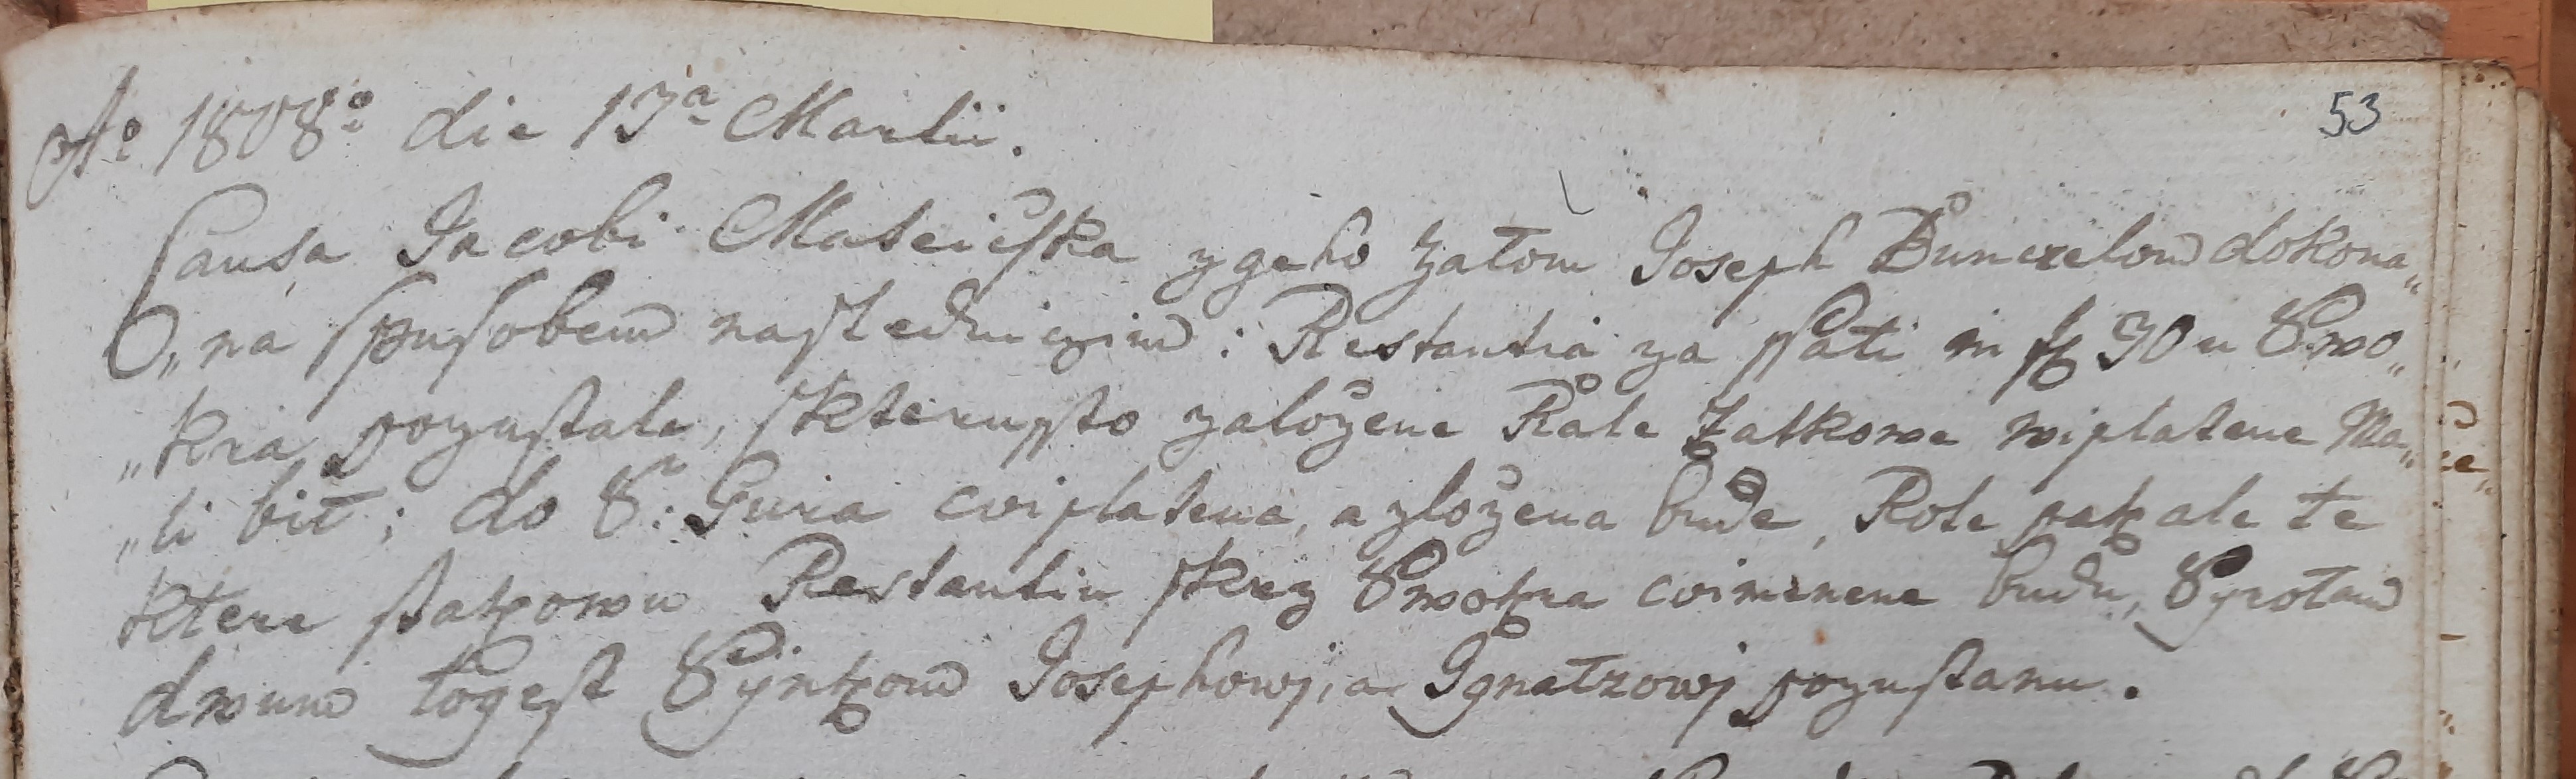 53
Ao 1808o die 13a Martii.
Causa Jacobi Mateičska z geho Zatom Joseph Bunczelom dokona„
O„na spusobem nasledniczim: Restantia za Ssati in f 30 u Swo„
„kra pozustala, skterussto založene Rale Zatkowe wiplatene Ma„
„li bit; do S: Gura wiplatena, a zložena bude, Role pak ale te
ktere statkowu Restantiu skrz Swokra wimenene budu, Syrotam
dwum togest Synkom Josephowj, a Ignatzowj pozustanu.